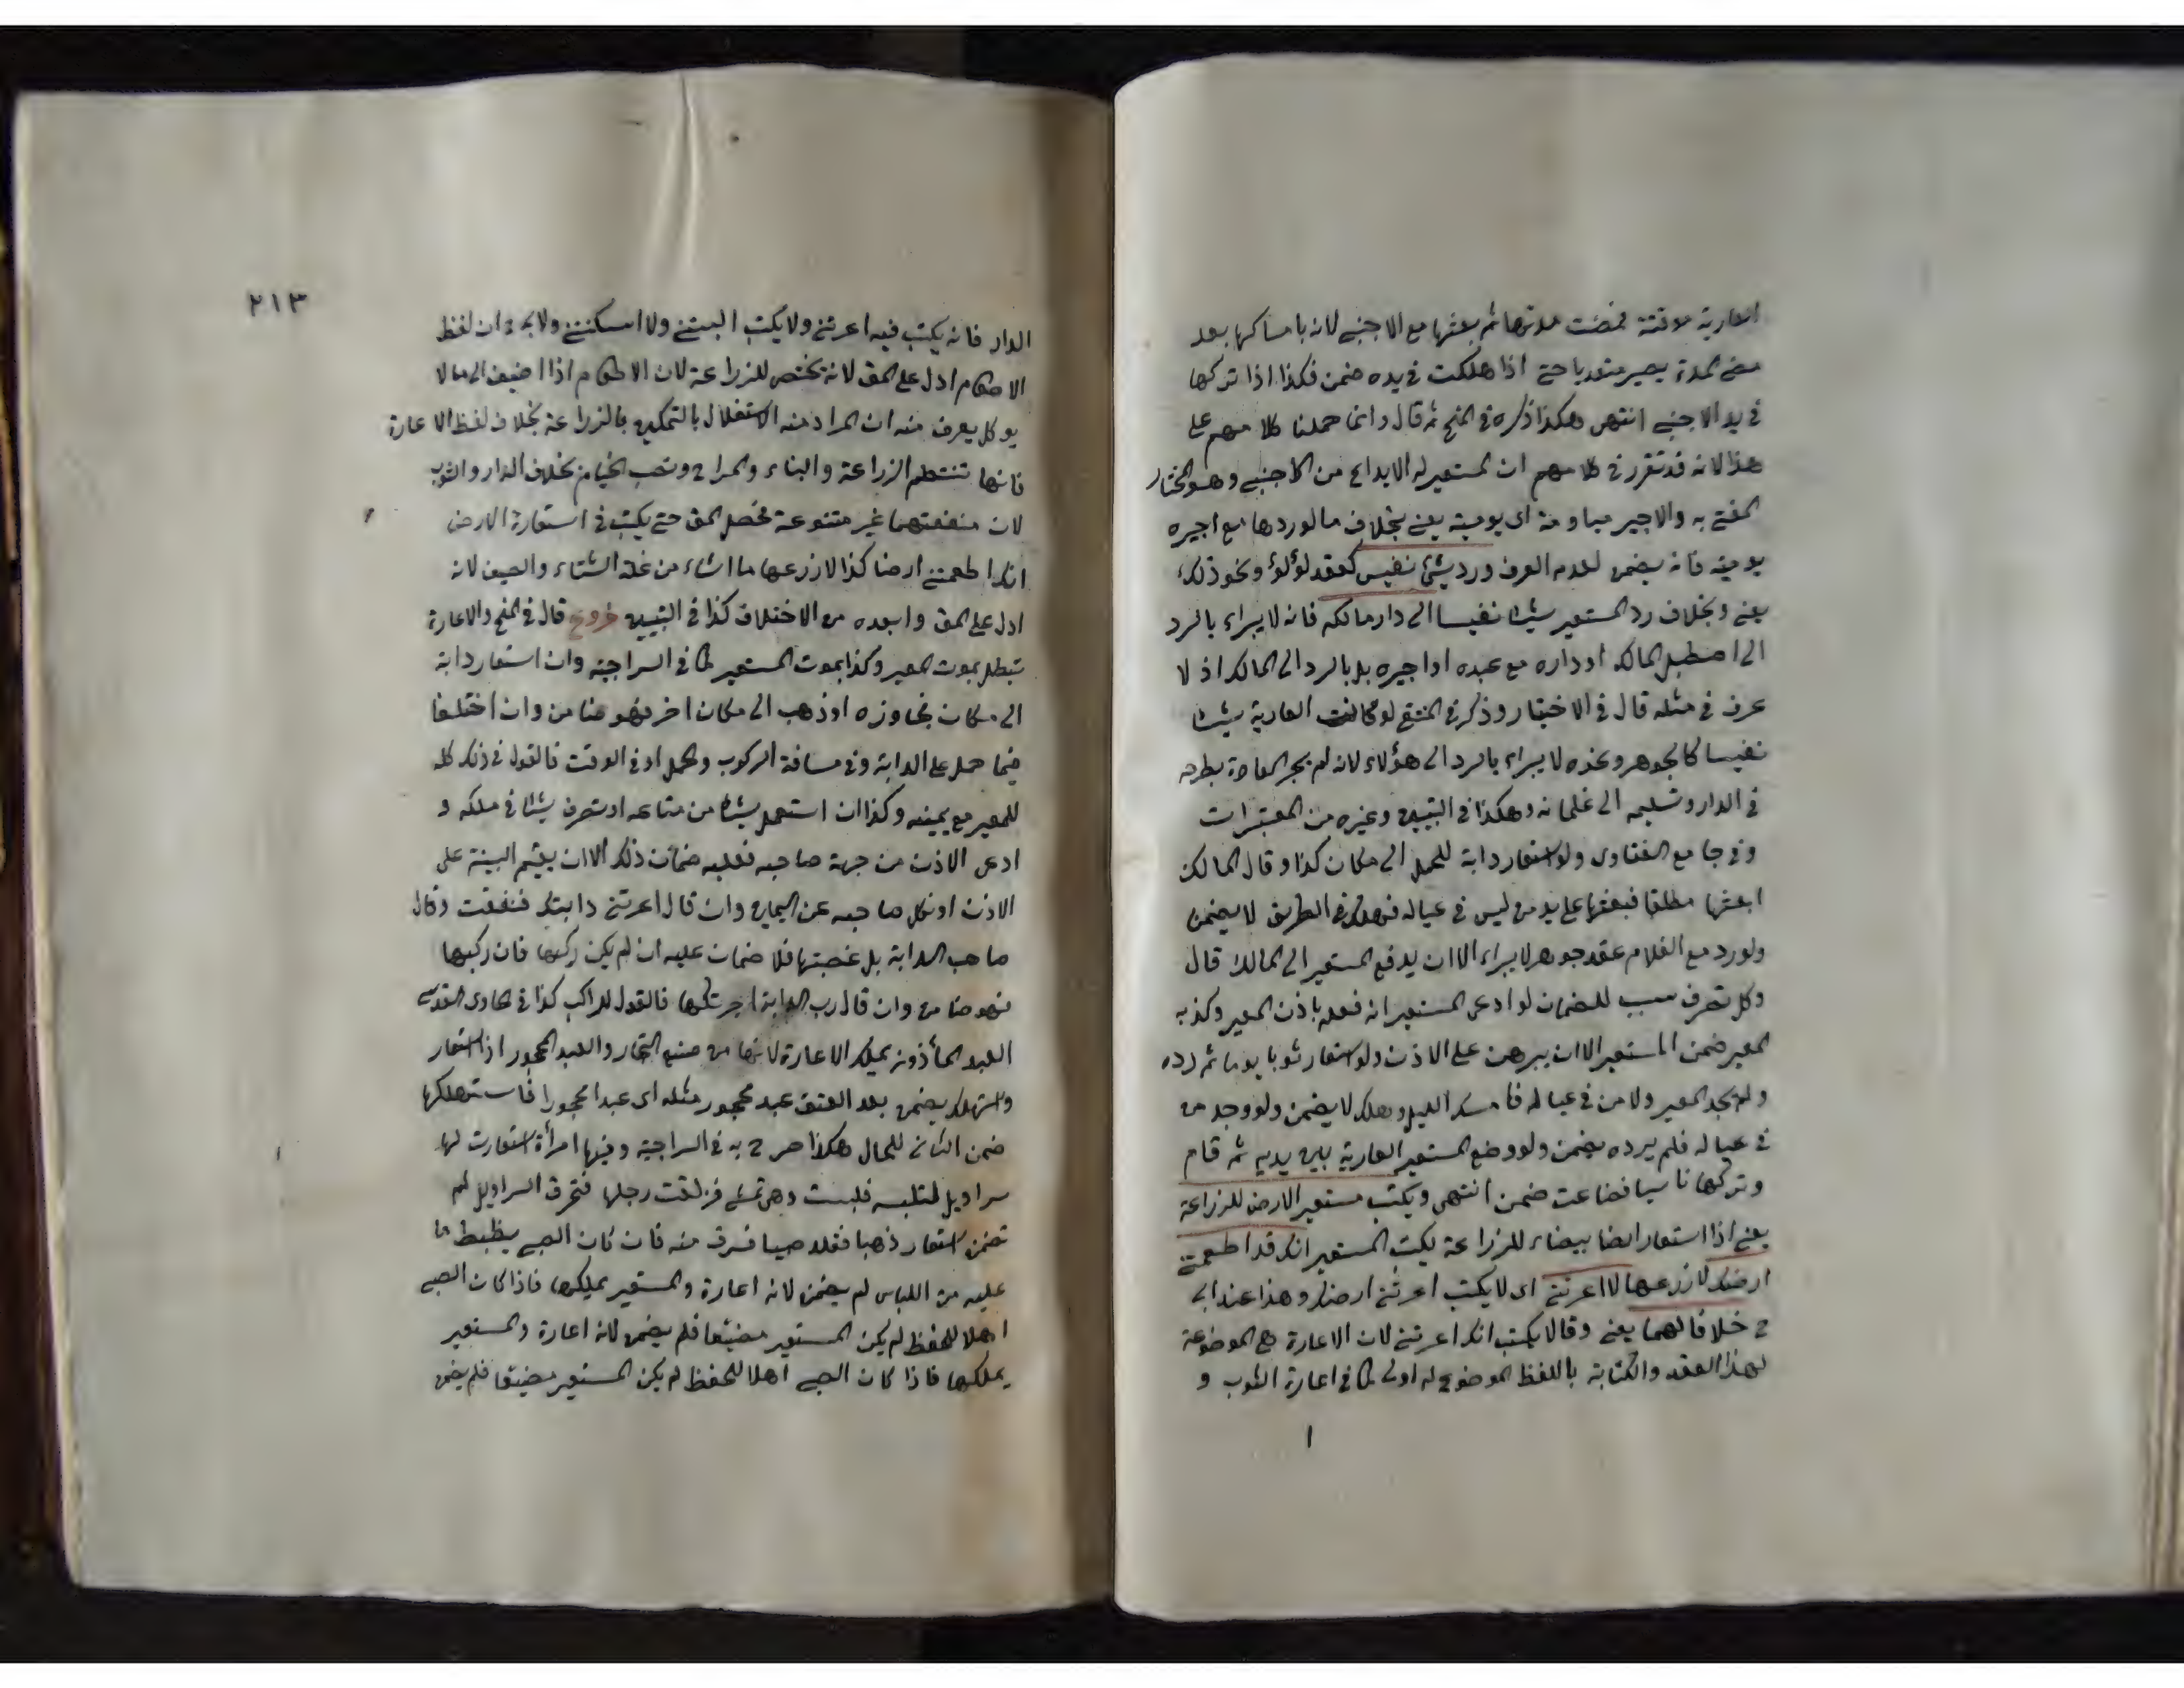 العارية موقتة فمضت مدتها ثم بعثها مع الاجنبي لانه بامساكها بعد
مضي المدة يصير متعديا حتى اذا هلكت في يده ضمن فكذا اذا تركها
في يد الاجنبي انتهى هكذا ذكره في المنح ثم قال وانما حملنا كلامهم على
هذا لانه قد تقرر في كلامهم ان المستعير له الايداع من الاجنبي وهو المختار
المفتى به والاجير مياومة اى يومية يعني بخلاف ما لو ردها مع اجيره
يومية فانه يضمن لعدم العرف ورد شئ نفيس كعقد لؤلؤ ونحو ذلك
يعني وبخلاف رد المستعير شيئا نفيسا الى دار مالكه فانه لا يبراء بالرد
الى اصطبل المالك او داره مع عبده او اجيره بل بالرد الى المالك اذ لا
عرف في مثله قال في الاختيار وذكر في المنتقى لو كانت العارية شيئا
نفيسا كالجوهر ونحوه لا يبراء بالرد الى هؤلاء لانه لم يجر العادة بطرحه
في الدار وتسليمه الى غلمانه وهكذا في التبيين وغيره من المعتبرات
وفي جامع الفتاوى ولو استعار دابة للحمل الى مكان كذا وقال المالك
ابعثها مطلقا فبعثها على يد من ليس في عياله فهلك في الطريق لا يضمن
ولو رد مع الغلام عقد جوهر لا يبراء الا ان يدفع المستعير الى المالك قال
وكل تصرف سبب للضمان لو ادعى المستعير انه فعله باذن المعير وكذبه
المعير ضمن المستعير الا ان يبرهن على الاذن ولو استعار ثوبا يوما ثم رده
ولم يجد المعير ولا من في عياله فامسك الليل وهلك لا يضمن ولو وجد من
في عياله فلم يرده يضمن ولو وضع المستعير العارية بين يديه ثم قام
وتركها ناسيا فضاعت ضمن انتهى ويكتب مستعير الارض للزراعة
يعني اذا استعار ارضا بيضاء للزراعة يكتب المستعير انك قد اطعمتني
ارضك لازرعها لا اعرتني اى لا يكتب اعرتني ارضك وهذا عند ابي
ح خلافا لهما يعني وقالا يكتب انك اعرتني لان الاعارة هي الموضوعة
لهذا العقد والكتابة باللفظ الموضوع له اولى كما في اعارة الثوب و
٢١٣
الدار فانه يكتب فيه اعرتني ولا يكتب البستني ولا اسكنتني ولابي ح ان لفظ
الاطعام ادل على المق لانه يختص للزراعة لان الاطعام اذا اضيف الى ما لا
يوكل يعرف منه ان المراد منه الاستغلال بالتمكين بالزراعة بخلاف لفظ الاعارة
فانها تنتظم الزراعة والبناء والمراح ونصب الخيام بخلاف الدار والثوب
لان منفعتهما غير متنوعة فحصل المق حتى يكتب في استعارة الارض
انك اطعمتني ارضا كذا لازرعها ما اشاء من غلة الشتاء والصيف لانه
ادل على المق وابعده من الاختلاف كذا في التبيين فروع قال في المنح والاعارة
تبطل بموت المعير وكذا بموت المستعير كما في السراجية وان استعار دابة
الى مكان فجاوزه او ذهب الى مكان اخر فهو ضامن وان اختلفا
فيما حمل على الدابة وفي مسافة الركوب والحمل او في الوقت فالقول في ذلك كله
للمعير مع يمينه وكذا ان استعمل شيئا من متاعه او تصرف شيئا في ملكه و
ادعى الاذن من جهة صاحبه فعليه ضمان ذلك الا ان يقيم البينة على
الاذن او نكل صاحبه عن اليمين وان قال اعرتني دابتك فنفقت وقال
صاحب الدابة بل غصبتها فلا ضمان عليه ان لم يكن ركبها فان ركبها
فهو ضامن وان قال رب الدابة اجرتكها فالقول للراكب كذا في الحاوى القدسي
العبد المأذون يملك الاعارة لانها من صنع التجار والعبد المحجور اذا استعار
واستهلك يضمن بعد العتق عبد محجور مثله اى عبدا محجورا فاستهلكها
ضمن الثاني للحال هكذا صرح به في السراجية وفيها امرأة استعارت لها
سراويل لتلبسه فلبست وهي تمشي فزلقت رجلها فتخرق السراويل لم
تضمن استعار ذهبا فقلد صبيا فسرق منه فان كان الصبي يظبط ما
عليه من اللباس لم يضمن لانه اعارة والمستعير يملكها فاذا كان الصبي
اهلا للحفظ لم يكن المستعير مضيعا فلم يضمن لانه اعارة والمستعير
يملكها فاذا كان الصبي اهلا للحفظ لم يكن المستعير مضيعا فلم يضمن